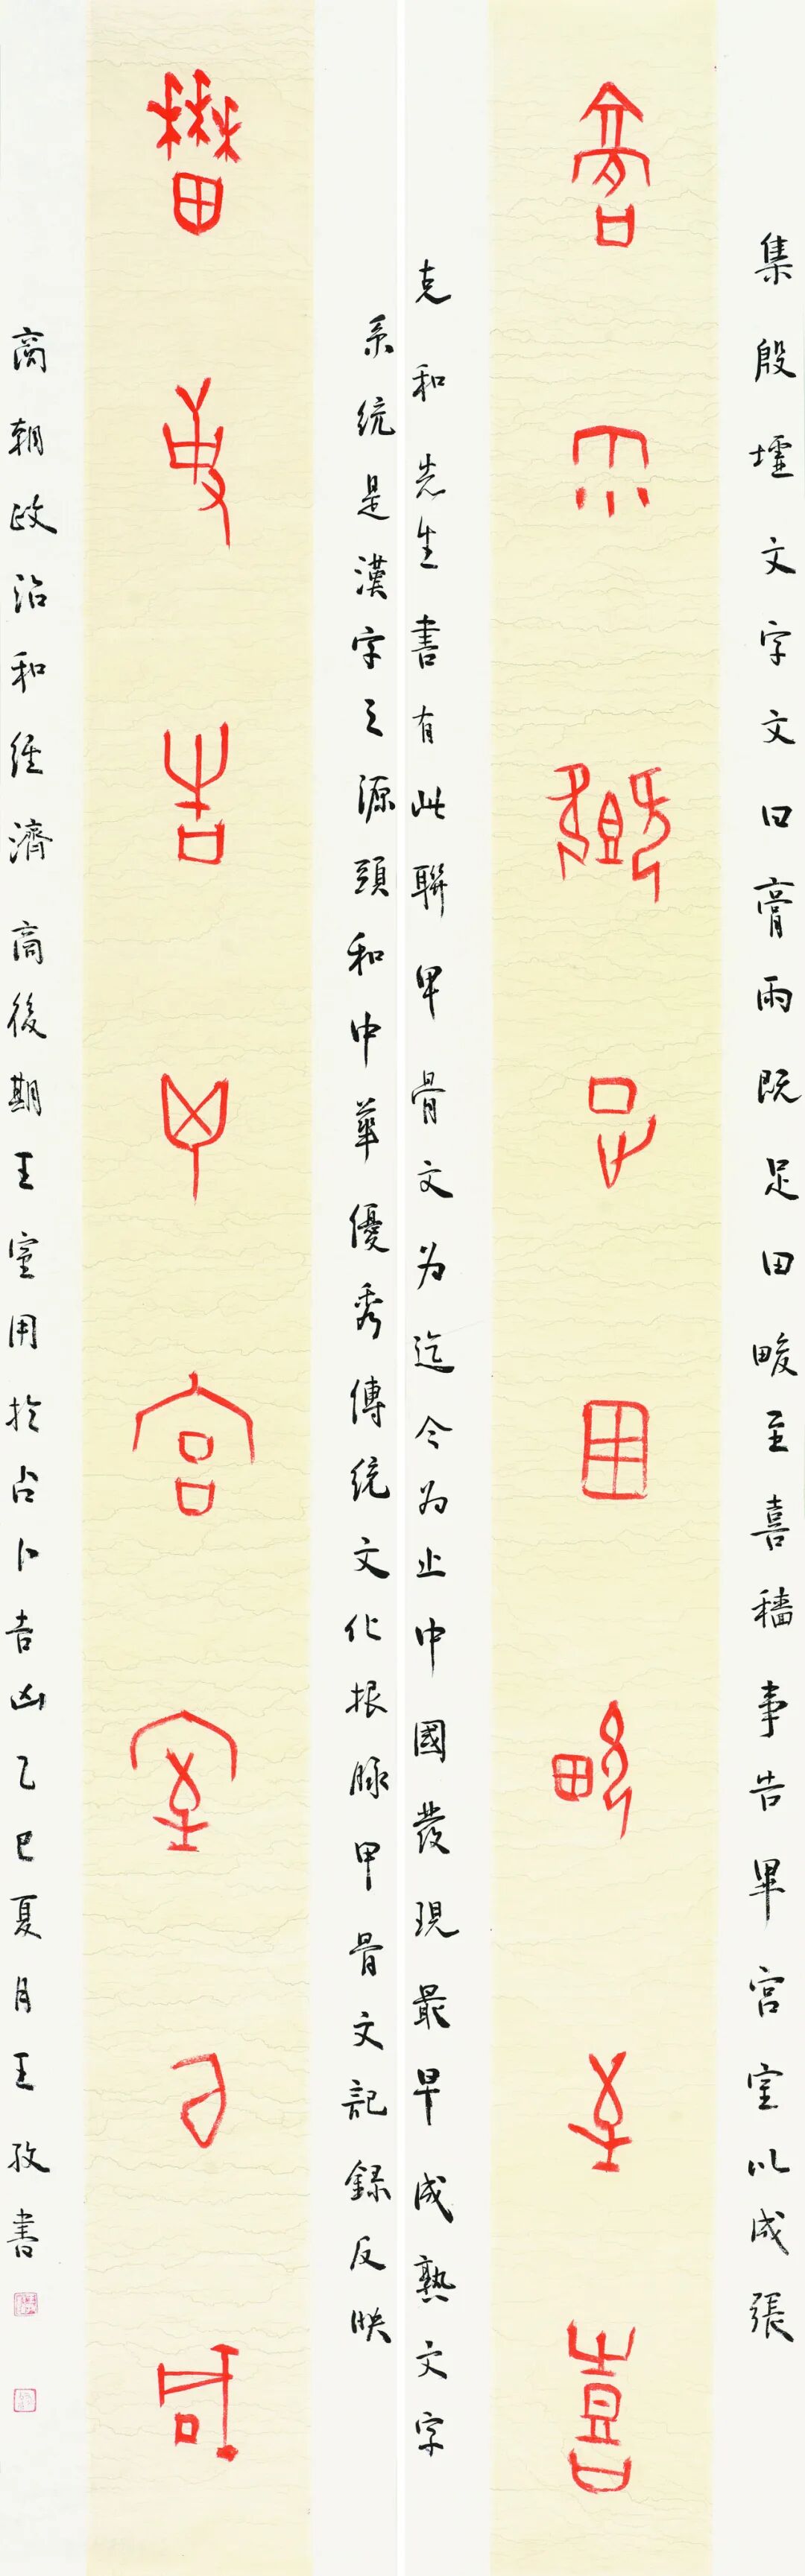 集殷墟文字文曰膏雨既足田畯至喜穡事告畢宮室以成張
膏雨既足田畯至喜
克和先生書有此聯甲骨文为迄今为止中國發現最早成熟文字
系统是漢字之源頭和中華優秀傳统文化根脉甲骨文記録反映
穡事告畢宮室以成
商朝政治和经濟商後期王室用於占卜吉凶乙巳夏月王孜書